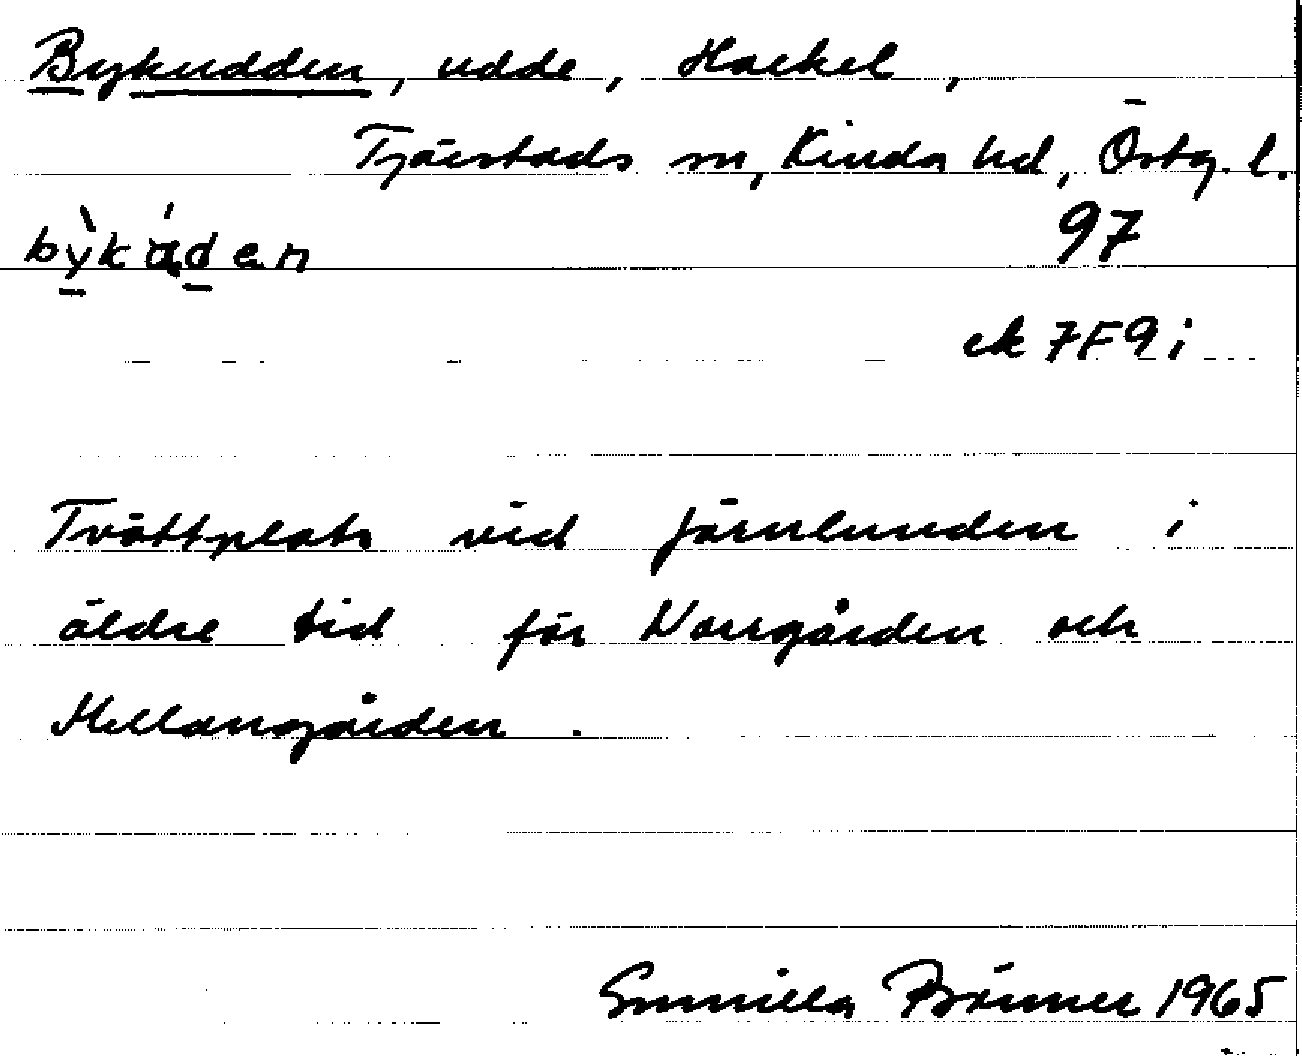 Bykudden, udde, Hackel,
Tjärstads sn, Kinda hd, Östg. l.
bỳkúden
97
ek 7F9i
Tvättplats vid Järnlunden i
äldre tid för Norrgården och
Mellangården.
Gunnilla Brömer 1965